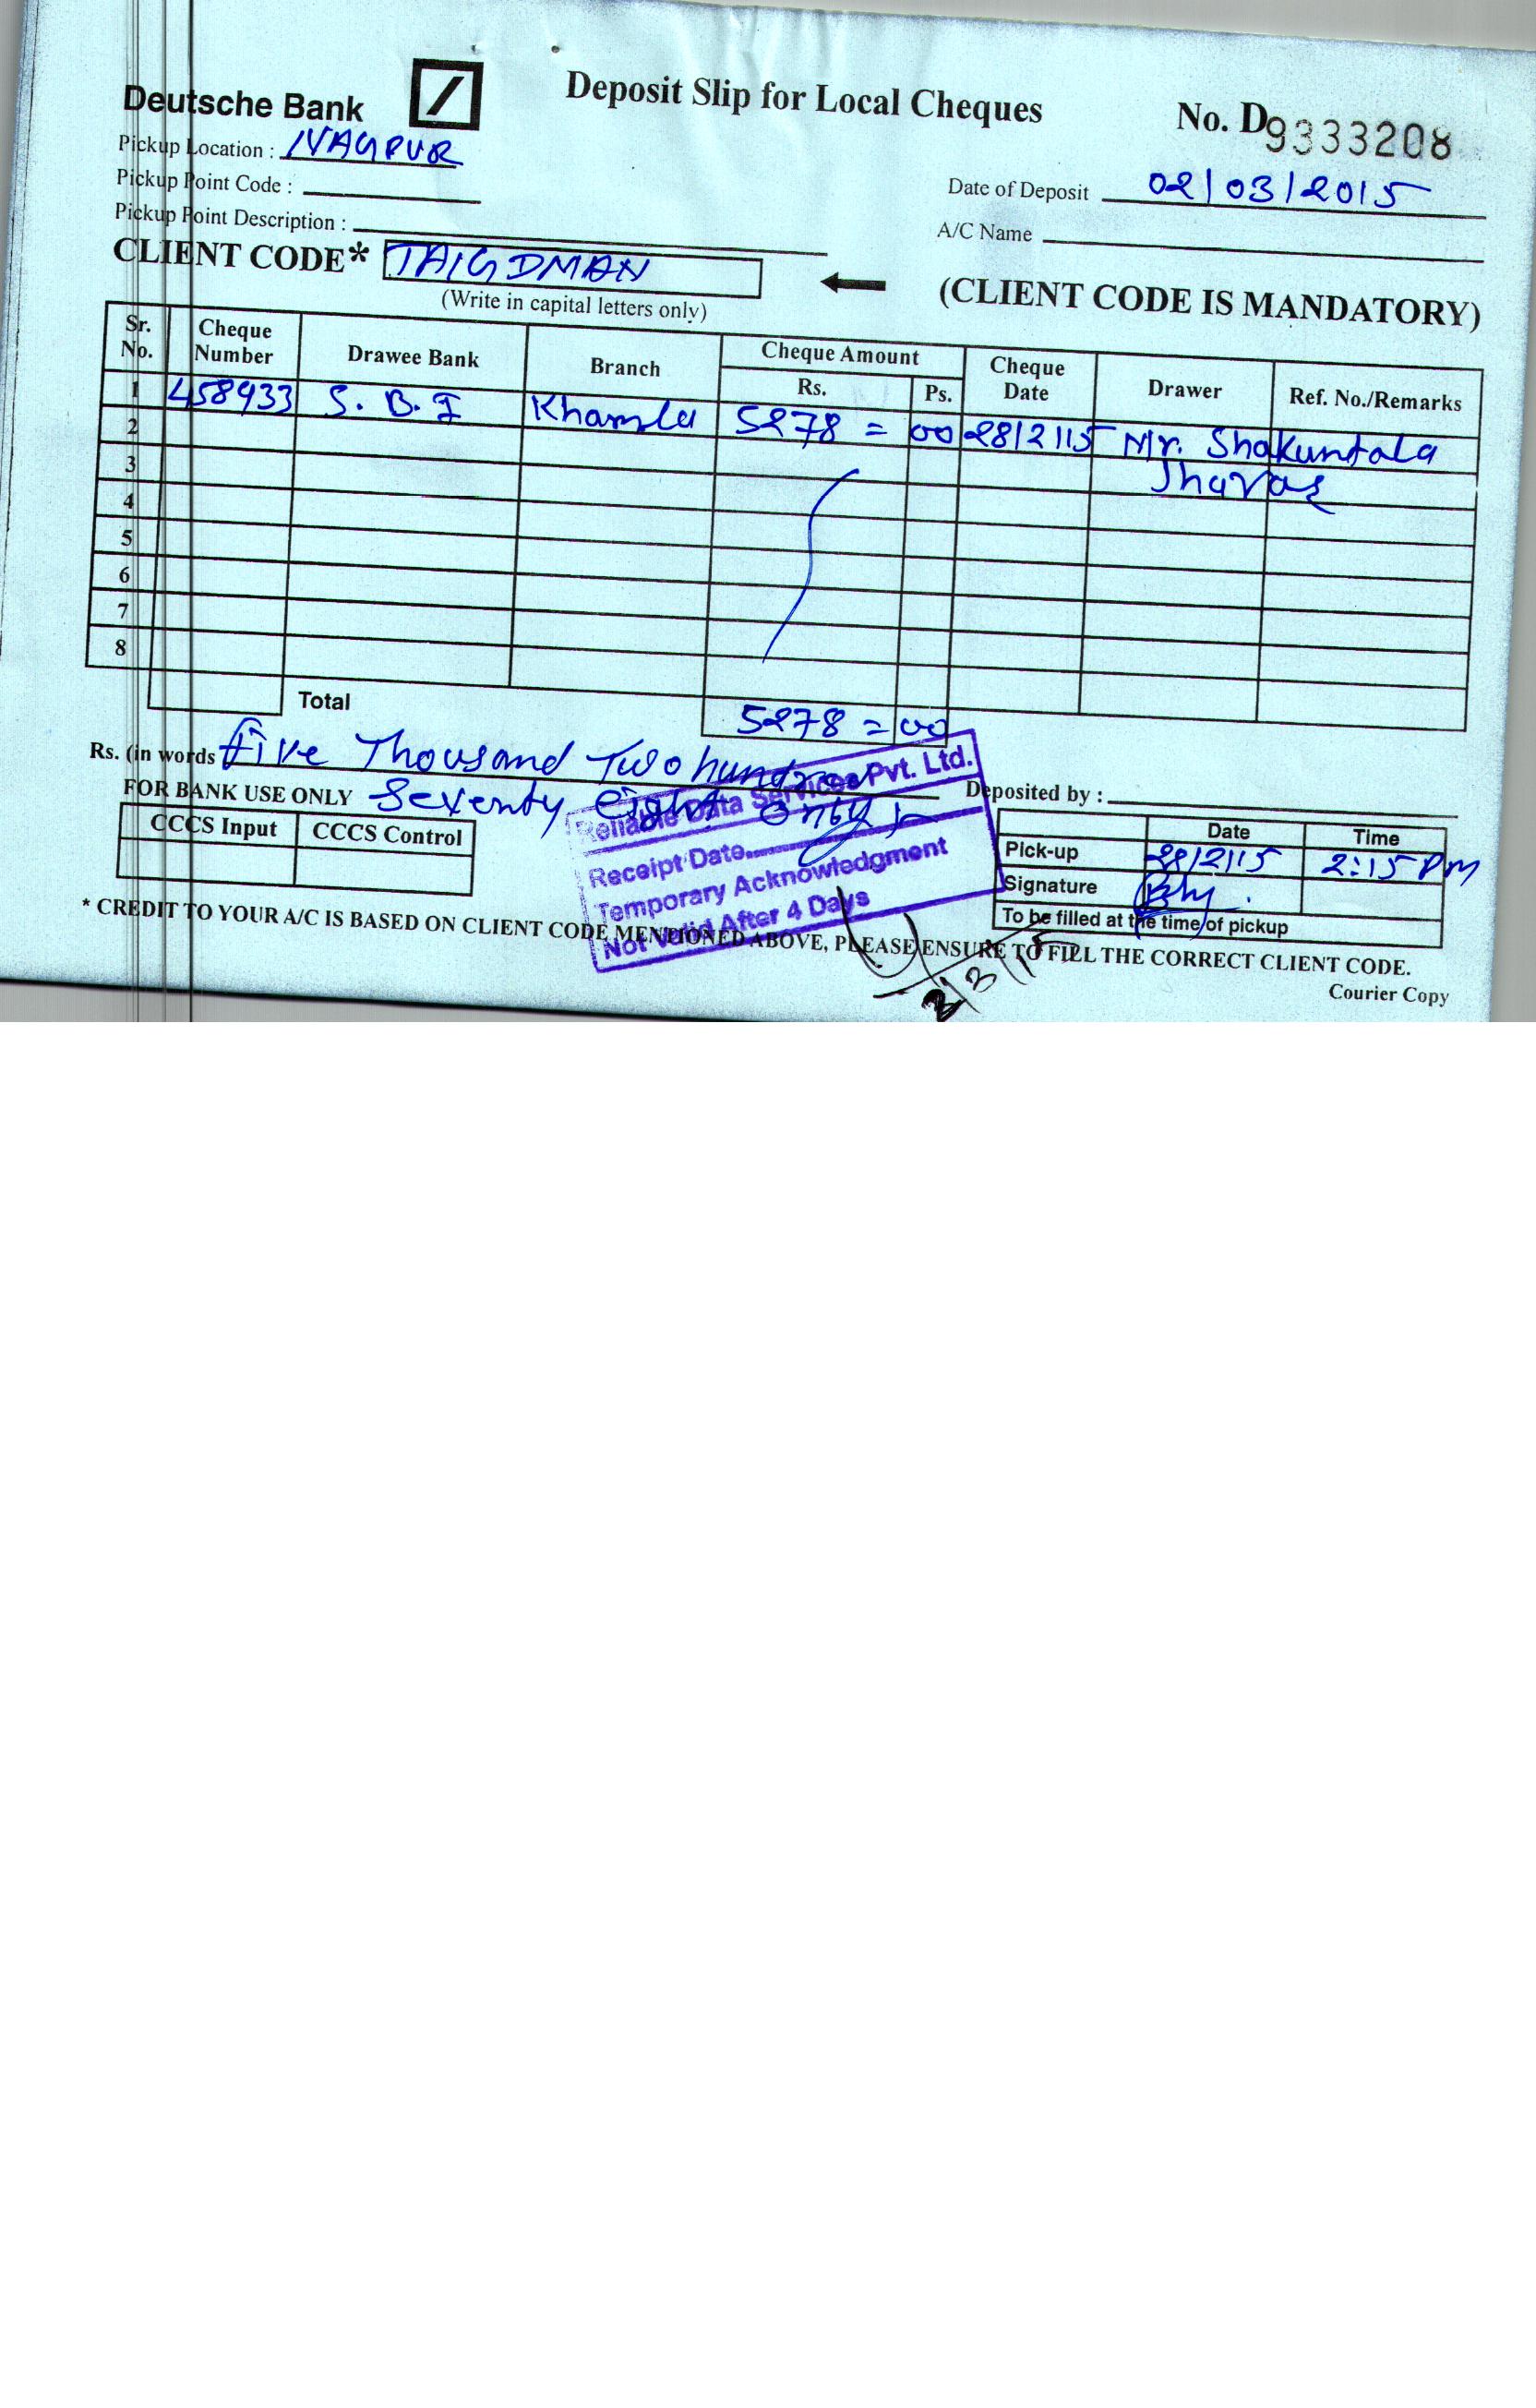 Deutsche Bank
Deposit Slip for Local Cheques
No. D9333208
Pickup Location : NAGPUR
Pickup Point Code :
Date of Deposit 02/03/2015
Pickup Point Description :
A/C Name
CLIENT CODE* TAIGDMAN
(CLIENT CODE IS MANDATORY)
(Write in capital letters only)
Sr. No. Cheque Number Drawee Bank Branch Cheque Amount Rs. Ps. Cheque Date Drawer Ref. No./Remarks
1 458933 S.B.I Khamla 5278 = 00 28/2/15 Mr. Shakuntala
2
3
4
5
6
7
8
Total 5278 = 00
Rs. (in words Five Thousand Two hundred
FOR BANK USE ONLY Seventy eight only
Deposited by :
CCCS Input CCCS Control
Reliable Data Services Pvt. Ltd.
Receipt Date
Temporary Acknowledgment
Not Valid After 4 Days
Date Time
Pick-up 28/2/15 2:15 PM
Signature
To be filled at the time of pickup
* CREDIT TO YOUR A/C IS BASED ON CLIENT CODE MENTIONED ABOVE, PLEASE ENSURE TO FILL THE CORRECT CLIENT CODE.
2/3/15
Courier Copy